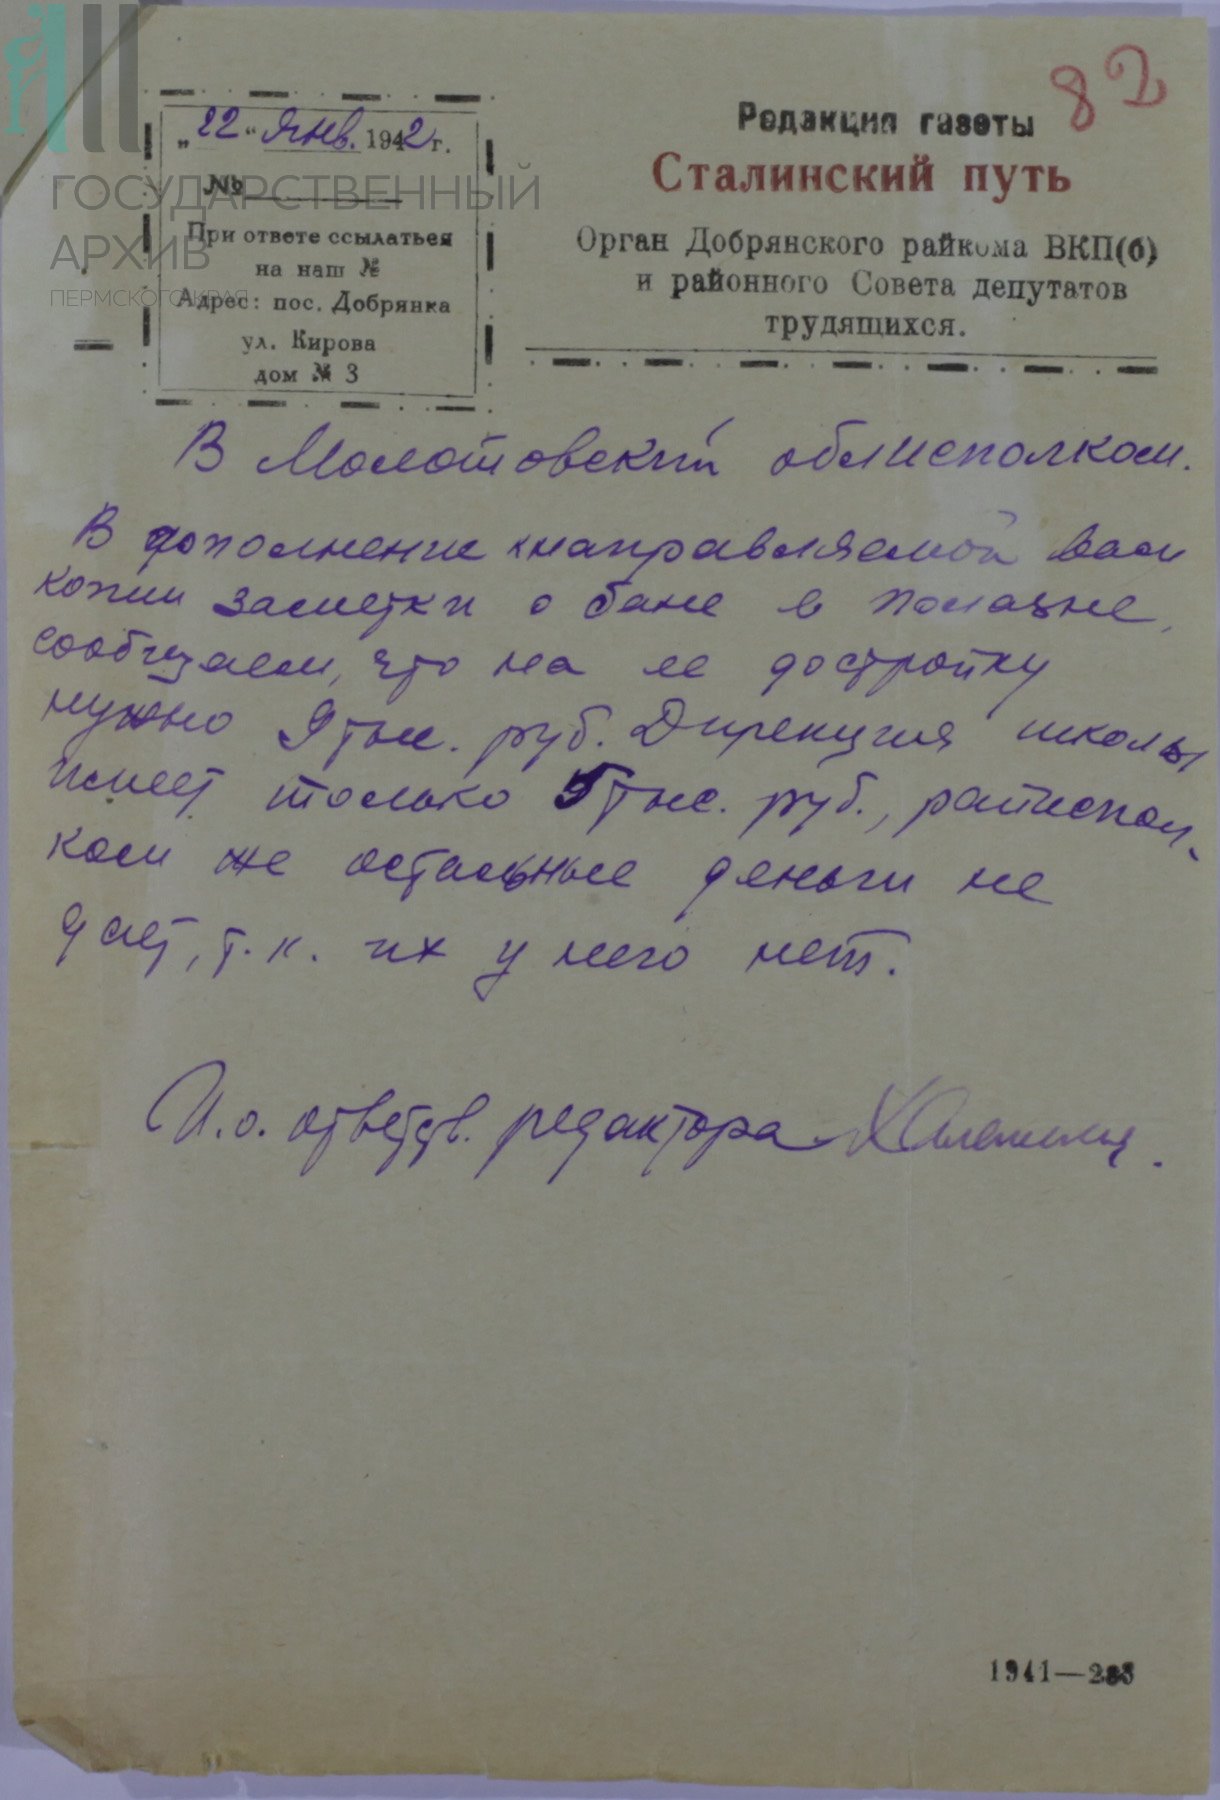 82
„22“ Янв. 1942 г.
№
При ответе ссылаться
на наш №
Адрес: пос. Добрянка
ул. Кирова
дом № 3
Редакция газеты
Сталинский путь
Орган Добрянского райкома ВКП(б)
и районного Совета депутатов
трудящихся.
ГОСУДАРСТВЕННЫЙ
АРХИВ
ПЕРМСКОГО КРАЯ
В Молотовский облисполком.
В дополнение к направляемой вам
копии заметки о бане в Полазне,
сообщаем, что на ее достройку
нужно 9 тыс. руб. Дирекция школы
имеет только 5 тыс. руб., райиспол-
ком же остальные деньги не
дает, т.к. их у него нет.
И.о. ответств. редактора
1941—283